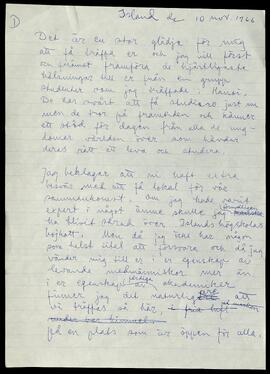 D
Island de 10 nov. 1966
Det är en stor glädje för mig
att få träffa er och jag vill först
och främst framföra de hjärtligaste
hälsningar till er från en grupp
studenter som jag träffade i Hanoi.
De har svårt att få studiero just nu
men de tror på framtiden och känner
ett stöd för dagen från alla de ung-
domar världen över som hävdar
deras rätt att leva och studera.
Jag beklagar att ni haft extra
besvär med att få lokal för vår
sammankomst. Om jag hade varit
expert i något ämne skulle jag
ha blivit bjuden över Islands högskolas
högtalare. Men då jag icke har någon
som helst titel att försvara och då jag
vänder mig till er i er egenskap av
levande medmänniskor mer än
i er egenskap av akademiker
finner jag det naturligare att
vi träffas så här, i fria luft
under bar himmel
på en plats som är öppen för alla.